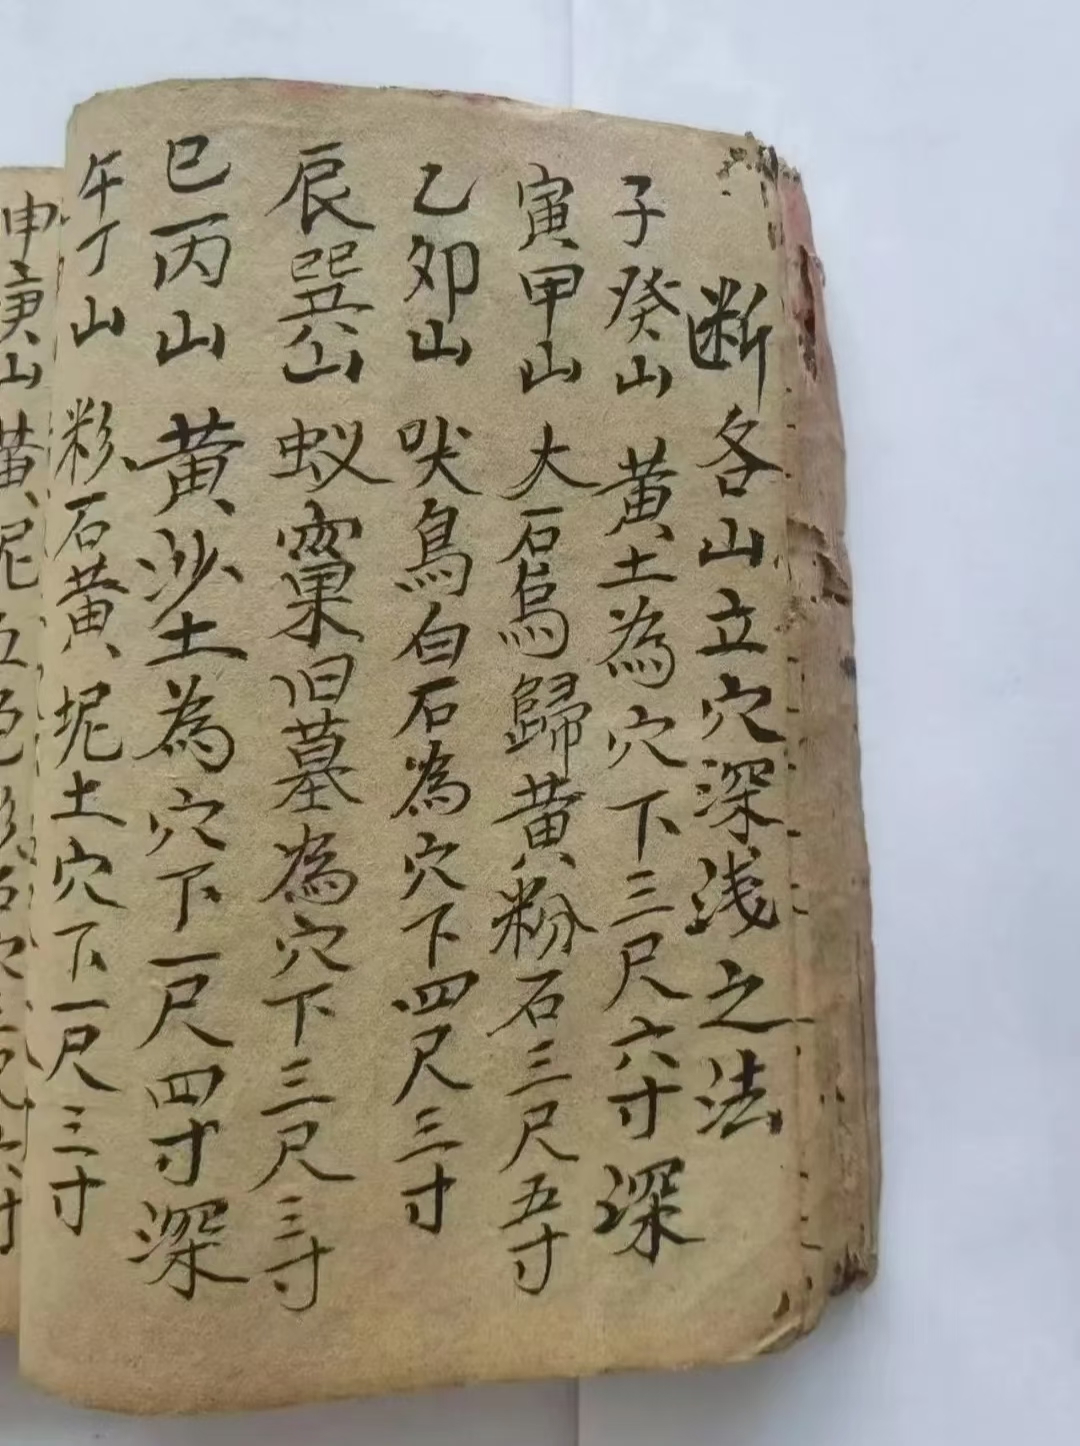 断各山立穴深浅之法
子癸山 黄土為穴下三尺六寸深
寅甲山 大石烏歸黄粉石三尺五寸
乙卯山 吠鳥白石為穴下四尺三寸
辰巽山 蚁窠旧墓為穴下三尺三寸
巳丙山 黄沙土為穴下一尺四寸深
午丁山 粉石黄坭土穴下一尺三寸
申庚山 黄坭五色